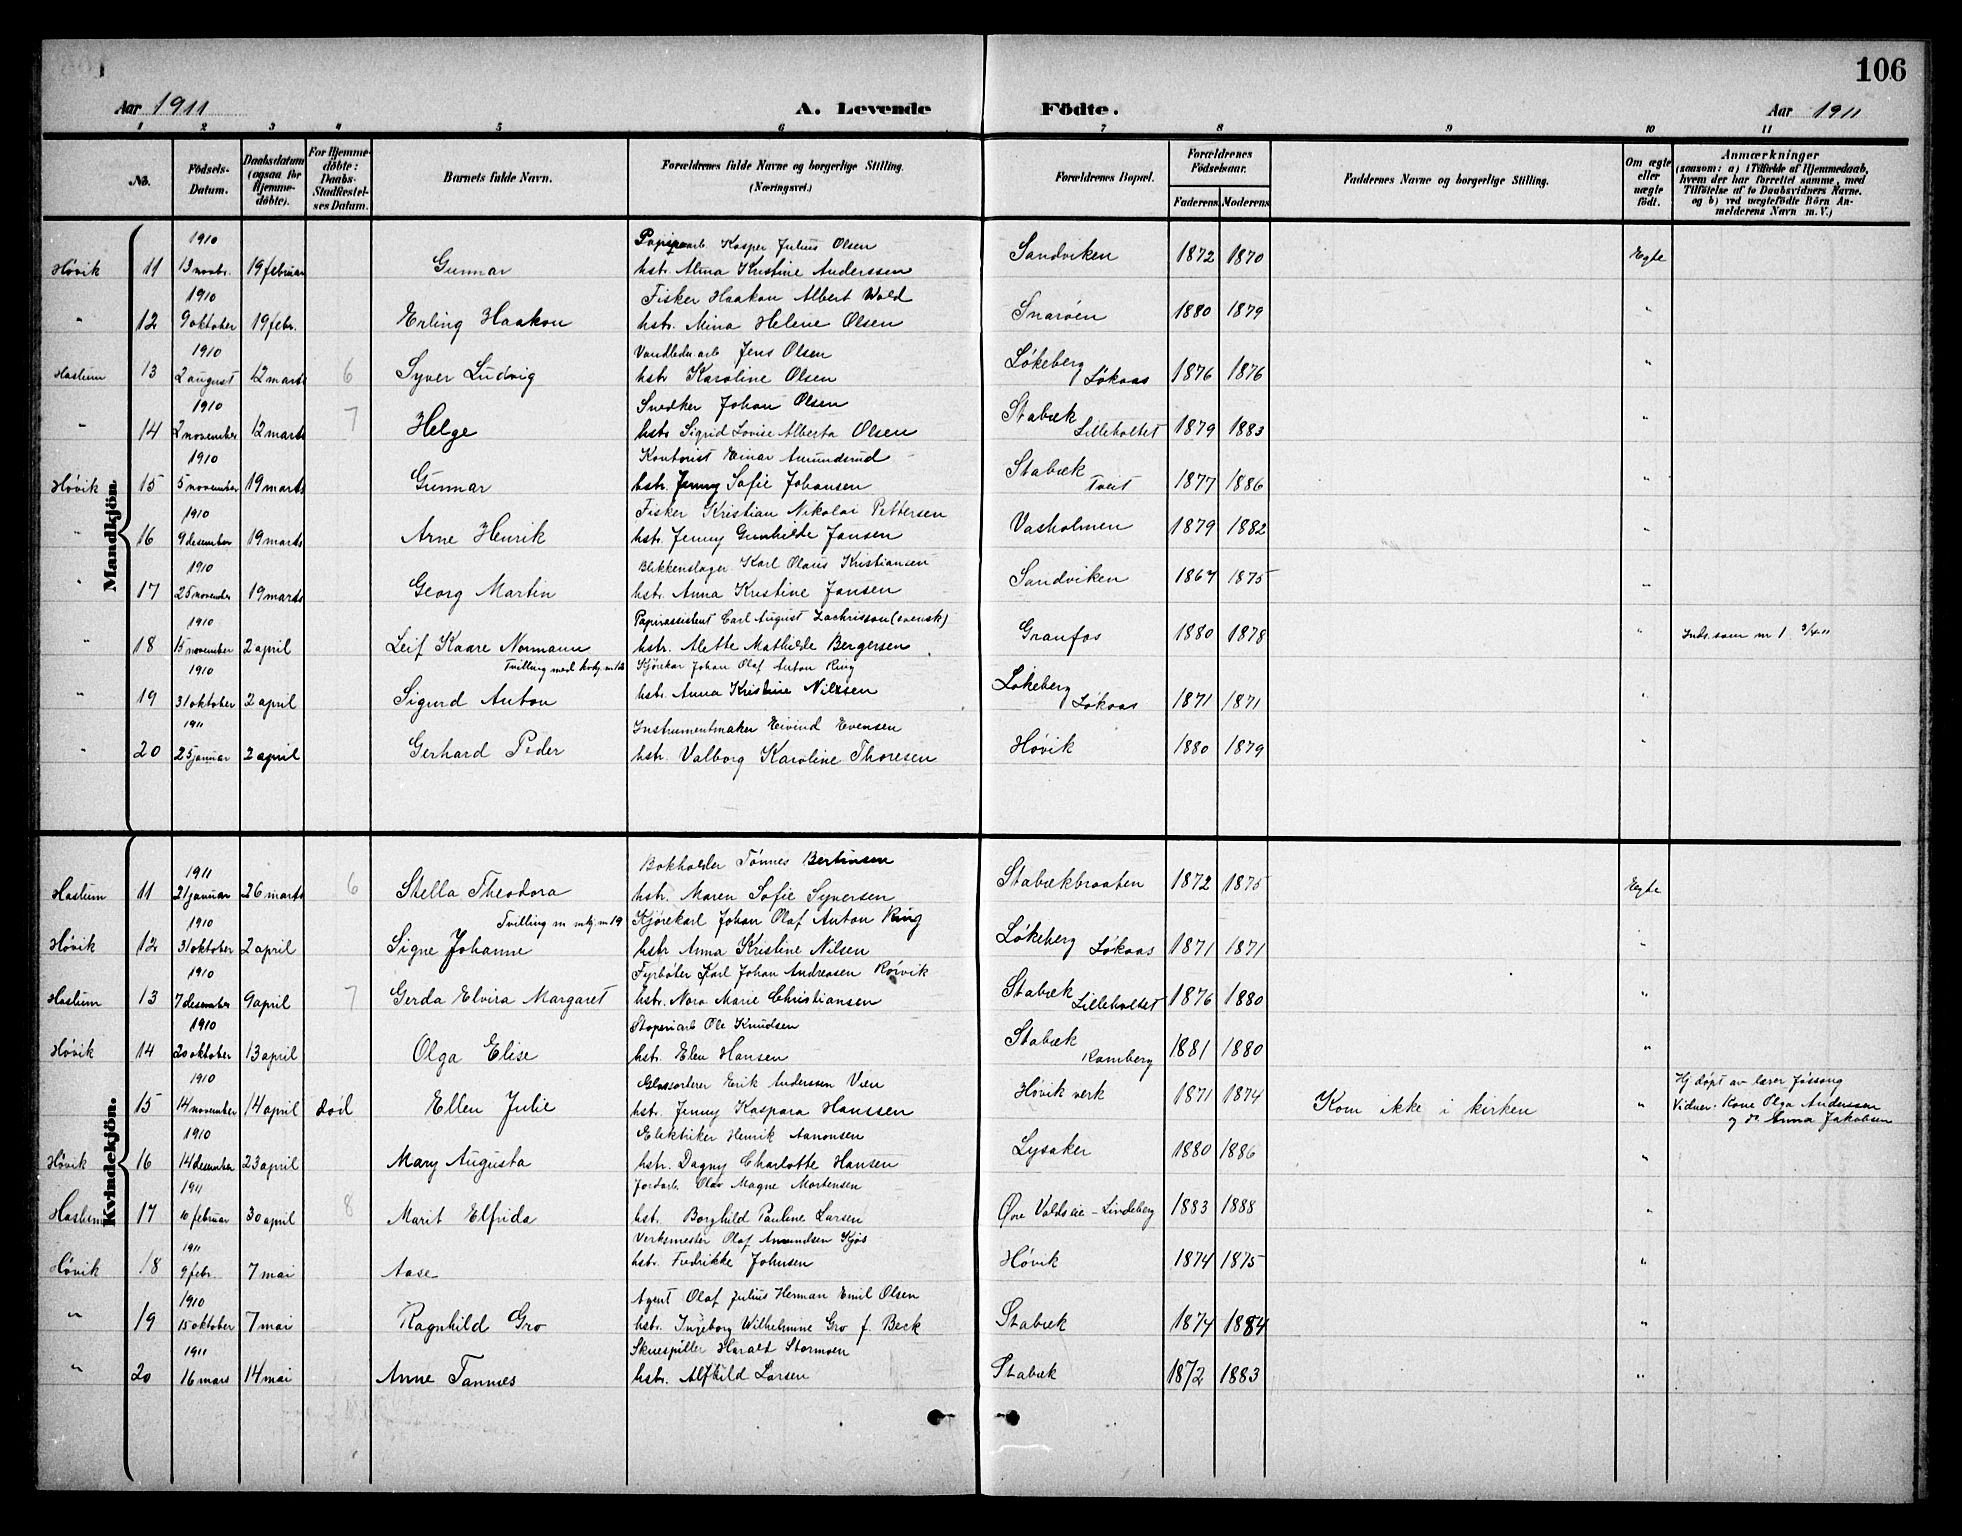 106
Aar 1911 A. Levende Födte. Aar 1911
1 2 3 4 5 6 7 8 9 10 11
No. Födsels-Datum. Daabsdatum (ogsaa for Hjemme-döbte). For Hjemme-döbte: Daabs-Stadfæstel-ses Datum. Barnets fulde Navn. Forældrenes fulde Navne og borgerlige Stilling. (Næringsvei.) Forældrenes Bopæl. Forældrenes Födselsaar. Faderens Moderens Faddernes Navne og borgerlige Stilling. Om ægte eller uægte födt. Anmærkninger (saasom: a) i Tilfælde af Hjemmedaab, hvem der har forrettet samme, med Tilföielse af to Daabsvidners Navne. og b) ved uægtefödte Börn An-melderens Navn m. V.)
Mandkjön
1910 Papirarb. Kasper Julius Olsen
Høvik 11 13 novbr. 19 februar Gunnar hstr. Alma Kristine Anderssen Sandviken 1872 1870 Egte
1910 Fisker Haakon Albert Wold
" 12 9 oktober 19 febr. Erling Haakon hstr. Mina Helene Olsen Snarøen 1880 1879 "
1910 Vandledn.arb Jens Olsen
Haslum 13 2 august 12 marts 6 Syver Ludvig hstr Karoline Olsen Løkeberg Løkaas 1876 1876 "
1910 Snedker Johan Olsen
" 14 2 november 12 marts 7 Helge hstr Sigrid Lovise Alberta Olsen Stabæk Lilleholtet 1879 1883 "
1910 Kontorist Einar Amundsrud
Høvik 15 5 november 19 marts Gunnar hstr. Jenny Sofie Johansen Stabæk Tveit 1877 1886 "
1910 Fisker Kristian Nikolai Pettersen
" 16 9 desember 19 marts Arne Henrik hstr. Jenny Gunhilde Jansen Vasholmen 1879 1882 "
1910 Blikkenslager Karl Olaus Kristiansen
" 17 25 november 19 marts Georg Martin hstr. Anna Kristine Jansen Sandviken 1867 1875 "
1910 Papirassistent Carl August Zachrisson (svensk)
" 18 15 november 2 april Leif Kaare Normann hstr. Alette Mathilde Bergersen Granfos 1880 1878 " Inds. som nr 1 3/4 11
1910 Tvilling med kvkj nr 12 Kjørekar Johan Olaf Anton Ring
" 19 31 oktober 2 april Sigurd Anton hstr. Anna Kristine Nilssen Løkeberg Løkaas 1871 1871 "
1911 Instrumentmaker Eivind Evensen
" 20 25 januar 2 april Gerhard Peder hstr. Valborg Karoline Thoresen Høvik 1880 1879 "
Kvindekjön.
1911 Bokholder Tønnes Bertinsen
Haslum 11 21 januar 26 marts 6 Stella Theodora hstr. Maren Sofie Syversen Stabækbraaten 1872 1875 Egte
1910 Tvilling m mkj. nr 19 Kjørekarl Johan Olaf Anton Ring
Høvik 12 31 oktober 2 april Signe Johanne hstr Anna Kristine Nilsen Løkeberg Løkaas 1871 1871 "
1910 Fyrbøter Karl Johan Andreasen Rørvik
Haslum 13 7 desember 9 april 7 Gerda Elvira Margaret hstr. Nora Marie Christiansen Stabæk Lilleholtet 1876 1880 "
1910 Støperiarb Ole Knudsen
Høvik 14 20 oktober 13 april Olga Elise hstr. Elen Hansen Stabæk Ramberg 1881 1880 "
1910 Glassorterer Erik Anderssen Vien
15 14 november 14 april död Ellen Julie hstr. Jenny Kaspara Hanssen Høvik verk 1871 1874 Kom ikke i kirken " Hj. døpt av lærer Jøssong Vidner: Kone Olga Anderssen og do Anna Jakobsen
1910 Elektriker Henrik Aaronsen
Høvik 16 14 desember 23 april Mary Augusta hstr. Dagny Charlotte Hansen Lysaker 1880 1886 "
1911 Jordarb. Olav Magne Mortensen
Haslum 17 10 februar 30 april 8 Marit Elfrida hst. Borghild Pauline Larsen Øvre Voldseie - Lindeberg 1883 1888 "
1911 Verksmester Olaf Amundsen Kjøs
Høvik 18 9 febr. 7 mai Aase hstr. Fredrikke Johnsen Høvik 1874 1875 "
1910 Agent Olaf Julius Herman Emil Olsen
" 19 15 oktober 7 mai Ragnhild Gro hstr. Ingeborg Wilhelmine Gro f. Beck Stabæk 1874 1884 "
1911 Skuespiller Harald Stormoen
" 20 16 mars 14 mai Anne Tannæs hstr. Alfhild Larsen Stabæk 1872 1883 "